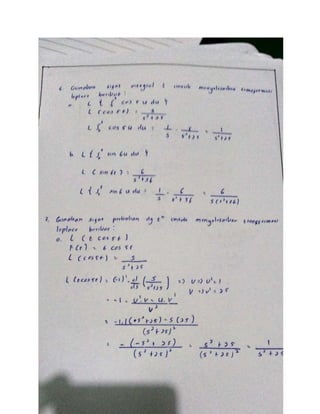 6. Gunakan sifat integral t untuk menyelesaikan transformasi
laplace berikut :
a. L { ∫₀ᵗ cos 5 u du }
L { cos 5t } = s / s²+25
L ∫₀ᵗ cos 5u du : 1/s · s / s²+25 = 1 / s²+25
b. L { ∫₀ᵗ sin 6u du }
L { sin 6t } = 6 / s²+36
L { ∫₀ᵗ sin 6 u du : 1/s · 6 / s²+36 = 6 / s(s²+36)
7. Gunakan sifat perkalian dg tⁿ untuk menyelesaikan transformasi
laplace berikut :
a. L ( t cos 5t )
F(t) = t cos 5t
L (cos 5t) = s / s²+25
L (t cos 5t) = (-1)¹ · d/ds ( s / s²+25 ) => U=s U¹=1
= -1 · U'.V - U.V' / V²
= -1.1(s²+25) - s (25) / (s²+25)²
= - (-s² + 25) / (s² + 25)² = s² + 25 / (s² + 25)² = 1 / s² + 25